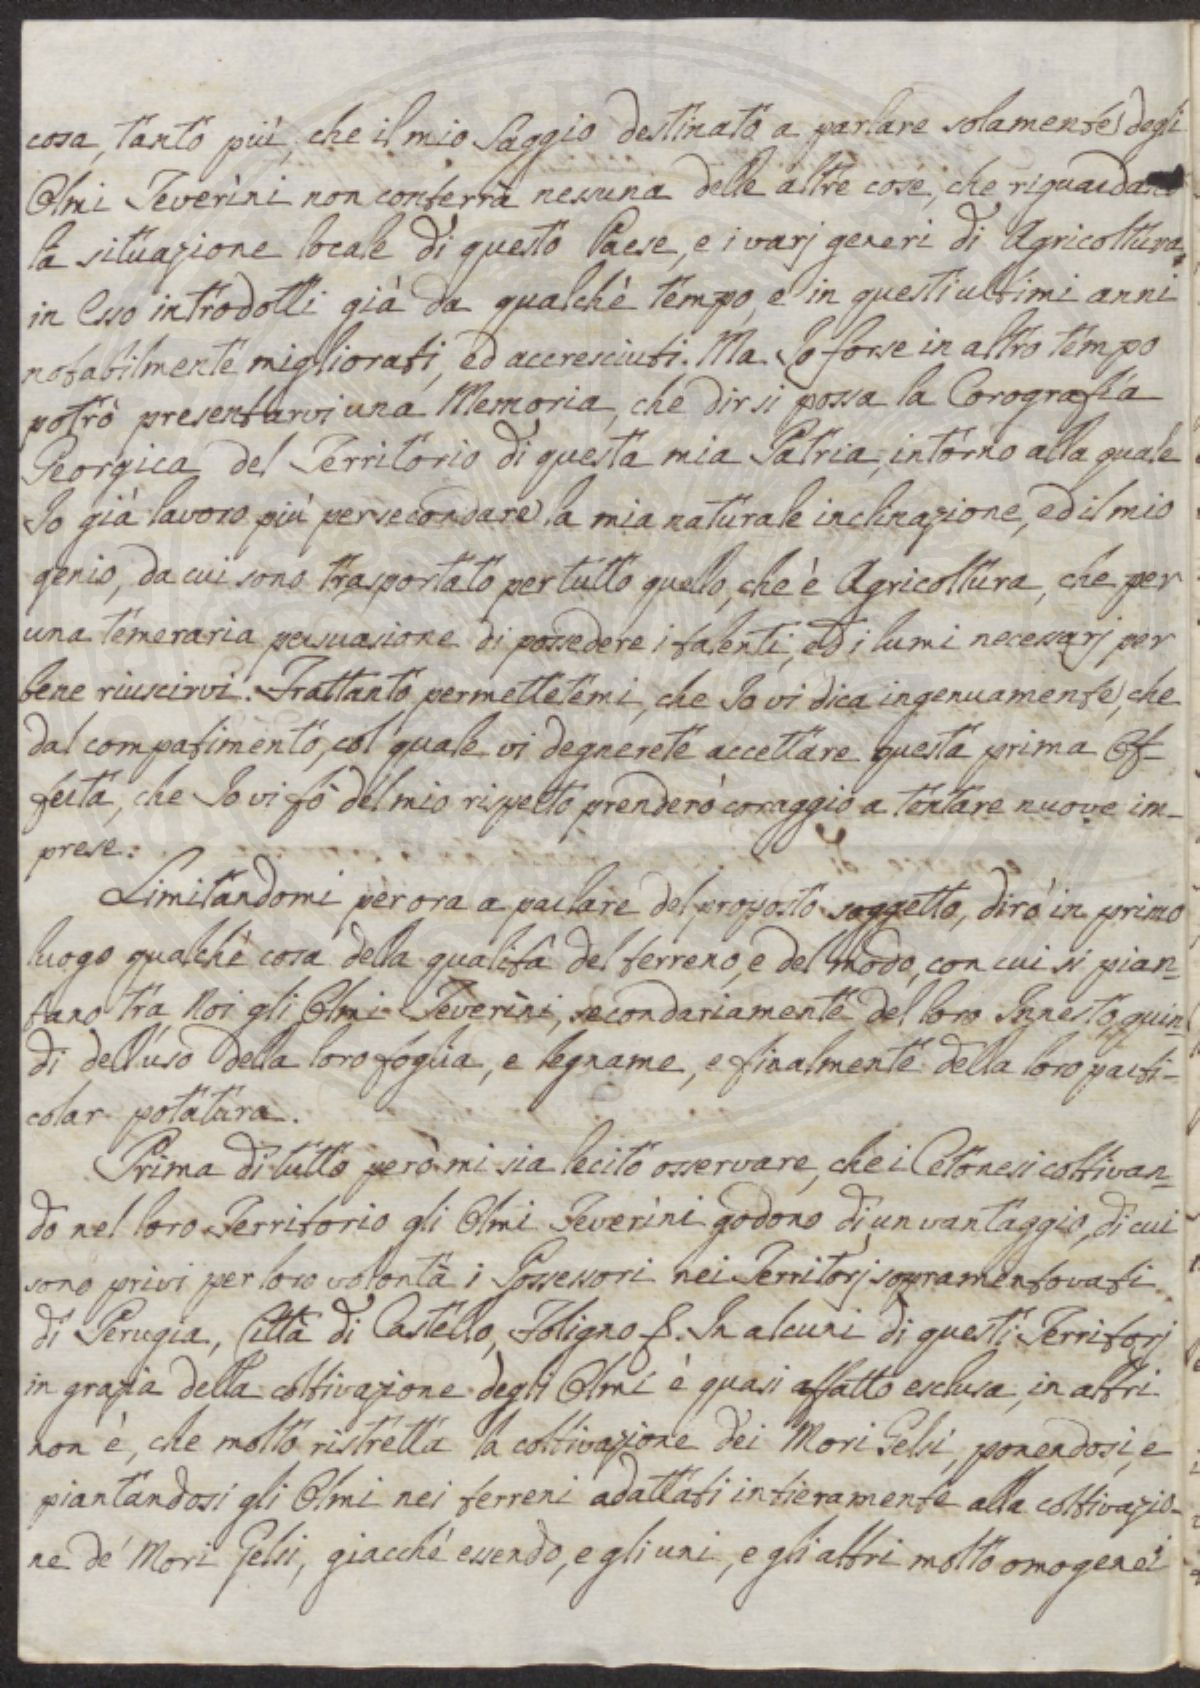 cosa, tanto più, che il mio Saggio destinato a parlare solamente degli
Olmi Teverini non conterrà nessuna delle altre cose, che riguardano
la situazione locale di questo Paese, e i varj generi di Agricoltura,
in Esso introdotti già da qualche tempo, e in questi ultimi anni
notabilmente migliorati, ed accresciuti. Ma Io forse in altro tempo
potrò presentarvi una Memoria, che dir si possa la Corografia
Georgica del Territorio di questa mia Patria, intorno alla quale
Io già lavoro più per secondare la mia naturale inclinazione, ed il mio
genio, da cui sono trasportato per tutto quello, che è Agricoltura, che per
una temeraria persuasione di possedere i talenti, ed i lumi necessarj per
bene riuscirvi. Frattanto permettetemi, che Io vi dica ingenuamente, che
dal compatimento, col quale vi degnerete accettare questa prima Of-
ferta, che Io vi fò del mio rispetto prenderò coraggio a tentare nuove im-
prese.
Limitandomi per ora a parlare del proposto soggetto, dirò in primo
luogo qualche cosa della qualità del terreno, e del modo, con cui si pian-
tano tra Noi gli Olmi Teverini, secondariamente del loro Innesto, quin-
di dell'uso della loro foglia, e legname, e finalmente della loro parti-
colar potatura.
Prima di tutto però mi sia lecito osservare, che i Cetonesi coltivan-
do nel loro Territorio gli Olmi Teverini godono di un vantaggio, di cui
sono privi per loro volontà i Possessori nei Territorj sopramentovati
di Perugia, Città di Castello, Foligno &. In alcuni di questi Territorj
in grazia della coltivazione degli Olmi è quasi affatto esclusa, in altri
non è, che molto ristretta la coltivazione dei Mori Gelsi, ponendosi, e
piantandosi gli Olmi nei terreni adattati intieramente alla coltivazio-
ne de' Mori Gelsi, giacchè essendo, e gli uni, e gli altri molto omogenei